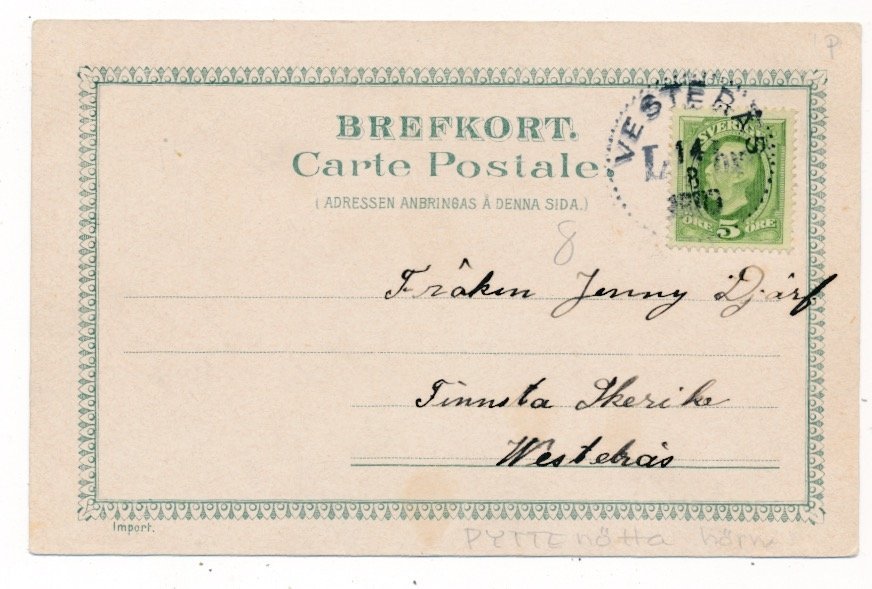 P
BREFKORT.
Carte Postale.
(ADRESSEN ANBRINGAS Å DENNA SIDA.)
VESTERÅS
14
8
SVERIGE
5
ÖRE ÖRE
8
Fröken Jenny Djärf
Tinnsta Skerike
Westerås
Import.
PYTTEnötta hörn